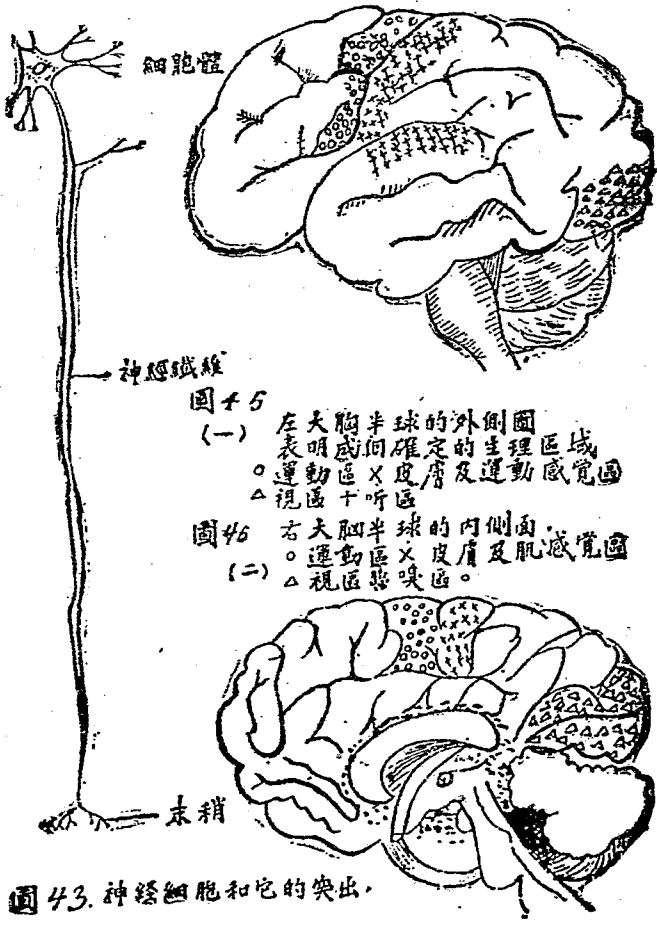 細胞體
神經纖維
圖45
(一)
左大胸半球的外側圖
表明感個確定的生理區域
○運動區×皮膚及運動感覺圖
△視區十听區
圖46
(二)
右大脑半球的内側面.
○運動區×皮膚及肌感覺圖
△視區 嗅區。
末稍
圖43.神経細胞和它的突出.